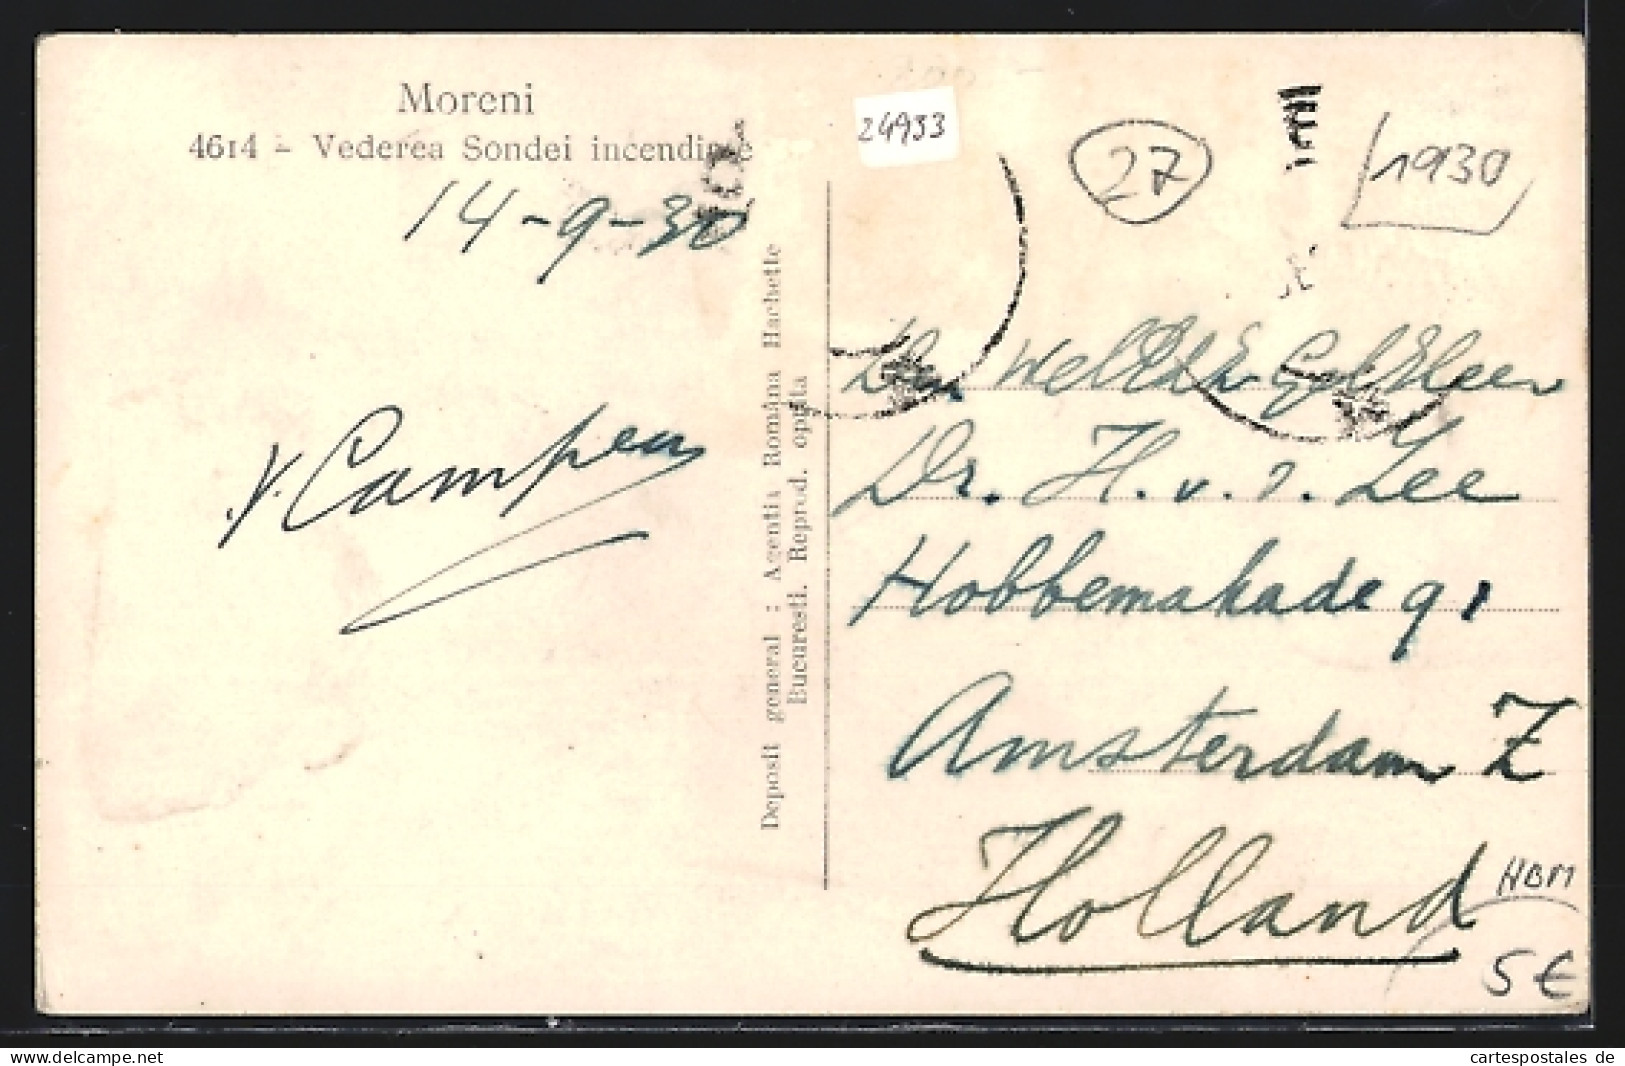 Moreni
4614 - Vederea Sondei incendiate
14-9-30
V. Campen
Deposit general : Agentia Româna Hachette
Bucuresti. Reprod. oprita
24933
27
1930
Den WelEdelGel Heer
Dr. H. v. d. Lee
Hobbemakade 91
Amsterdam Z
Holland
HBM
5€
delcampe.net
cartespostales de